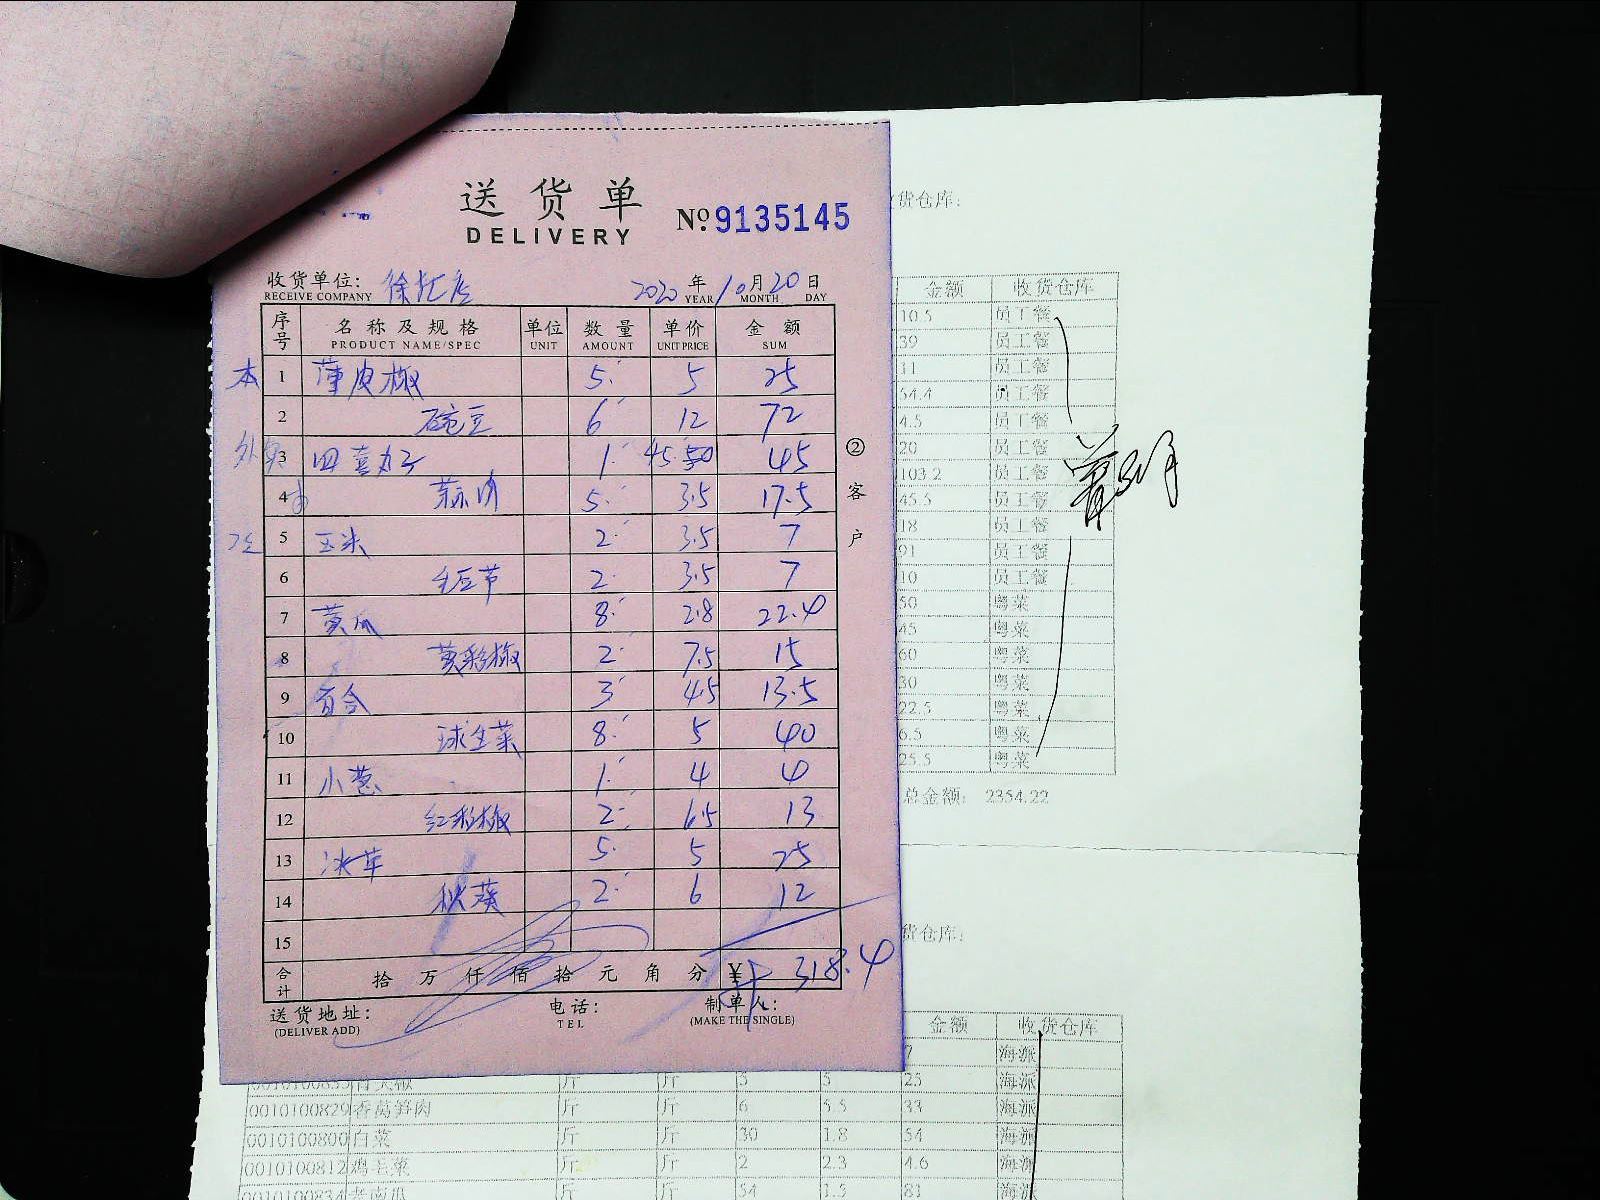 送货单
DELIVERY
№ 9135145
收货单位: 徐汇店 2020年10月20日
RECEIVE COMPANY YEAR MONTH DAY
序号 名称及规格 单位 数量 单价 金额
PRODUCT NAME/SPEC UNIT AMOUNT UNIT PRICE SUM
本 1 薄皮椒 5 5 25
2 豌豆 6 12 72
3 四喜力子 1 45 50 45
4 蒜肉 5 3.5 17.5
5 玉米 2 3.5 7
6 毛豆节 2 3.5 7
7 黄瓜 8 2.8 22.4
8 黄彩椒 2 7.5 15
9 百合 3 4.5 13.5
10 球生菜 8 5 40
11 小葱 1 4 4
12 红彩椒 2 6.5 13
13 冰草 5 5 25
14 秋葵 2 6 12
15
合计 拾万仟佰拾元角分 ¥ 318.4
送货地址: 电话: 制单人:
(DELIVER ADD) TEL (MAKE THE SINGLE)
②客户
货仓库:
金额 收货仓库
10.5 员工餐
39 员工餐
11 员工餐
54.4 员工餐
4.5 员工餐
20 员工餐
103.2 员工餐
45.5 员工餐
18 员工餐
91 员工餐
10 员工餐
50 粤菜
45 粤菜
60 粤菜
30 粤菜
22.5 粤菜
6.5 粤菜
25.5 粤菜
总金额: 2354.22
货仓库:
金额 收货仓库
7 海派
5 5 25 海派
0010100829 香莴笋肉 斤 斤 6 5.5 33 海派
0010100800 白菜 斤 斤 30 1.8 54 海派
0010100812 鸡毛菜 斤 斤 2 2.3 4.6 海派
0010100834 老南瓜 斤 斤 54 1.5 81 海派